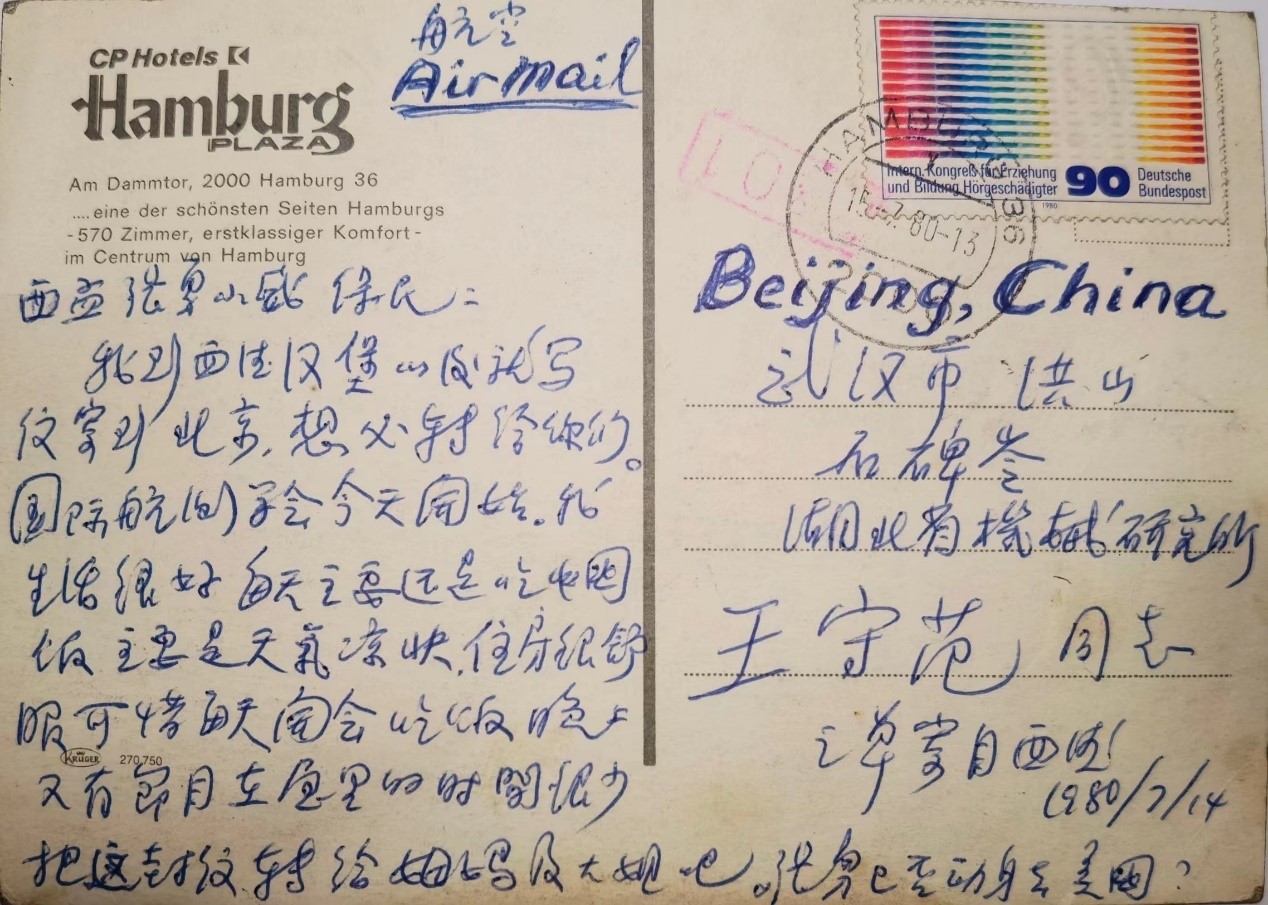 航空
Air mail
CP Hotels
Hamburg
PLAZA
Am Dammtor, 2000 Hamburg 36
....eine der schönsten Seiten Hamburgs
-570 Zimmer, erstklassiger Komfort-
im Centrum von Hamburg
保民:
我到西德汉堡以后就写
信寄到北京,想必转给你们。
国际航海学会今天開始。我
生活很好 每天主要还是吃中国
饭 主要是天氣凉快,住房很舒
服 可惜每天開会 吃饭 晚上
又有節目 在屋里的时間很少
把这封信转给姆妈及大姐吧。张勇已否动身去美国?
KRÜGER 270.750
Intern. Kongreß für Erziehung
und Bildung Hörgeschädigter
90
Deutsche
Bundespost
1980
HAMBURG 36
15.-7.80-13
2000
Beijing, China
武汉市 洪山
石碑岑
湖北省機械研究所
王守范 同志
寄自西德
1980/7/14